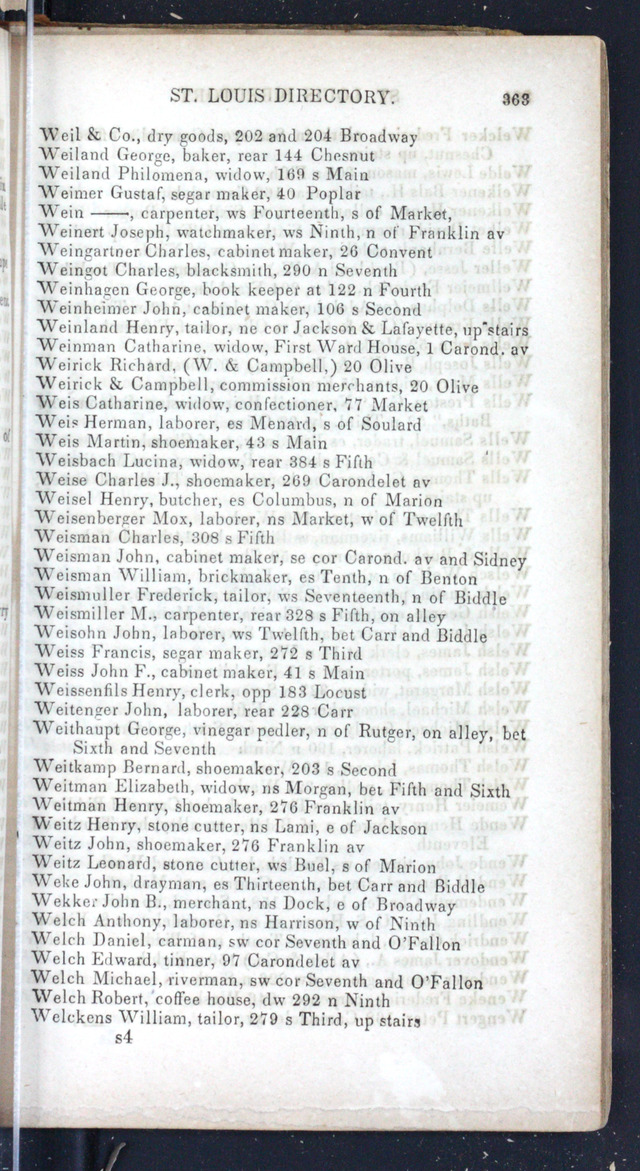 ST. LOUIS DIRECTORY. 363
Weil & Co., dry goods, 202 and 204 Broadway
Weiland George, baker, rear 144 Chesnut
Weiland Philomena, widow, 169 s Main
Weimer Gustaf, segar maker, 40 Poplar
Wein ——, carpenter, ws Fourteenth, s of Market,
Weinert Joseph, watchmaker, ws Ninth, n of Franklin av
Weingartner Charles, cabinet maker, 26 Convent
Weingot Charles, blacksmith, 290 n Seventh
Weinhagen George, book keeper at 122 n Fourth
Weinheimer John, cabinet maker, 106 s Second
Weinland Henry, tailor, ne cor Jackson & Lafayette, up stairs
Weinman Catharine, widow, First Ward House, 1 Carond. av
Weirick Richard, (W. & Campbell,) 20 Olive
Weirick & Campbell, commission merchants, 20 Olive
Weis Catharine, widow, confectioner, 77 Market
Weis Herman, laborer, es Menard, s of Soulard
Weis Martin, shoemaker, 43 s Main
Weisbach Lucina, widow, rear 384 s Fifth
Weise Charles J., shoemaker, 269 Carondelet av
Weisel Henry, butcher, es Columbus, n of Marion
Weisenberger Mox, laborer, ns Market, w of Twelfth
Weisman Charles, 308 s Fifth
Weisman John, cabinet maker, se cor Carond. av and Sidney
Weisman William, brickmaker, es Tenth, n of Benton
Weismuller Frederick, tailor, ws Seventeenth, n of Biddle
Weismiller M., carpenter, rear 328 s Fifth, on alley
Weisohn John, laborer, ws Twelfth, bet Carr and Biddle
Weiss Francis, segar maker, 272 s Third
Weiss John F., cabinet maker, 41 s Main
Weissenfils Henry, clerk, opp 183 Locust
Weitenger John, laborer, rear 228 Carr
Weithaupt George, vinegar pedler, n of Rutger, on alley, bet
Sixth and Seventh
Weitkamp Bernard, shoemaker, 203 s Second
Weitman Elizabeth, widow, ns Morgan, bet Fifth and Sixth
Weitman Henry, shoemaker, 276 Franklin av
Weitz Henry, stone cutter, ns Lami, e of Jackson
Weitz John, shoemaker, 276 Franklin av
Weitz Leonard, stone cutter, ws Buel, s of Marion
Weke John, drayman, es Thirteenth, bet Carr and Biddle
Wekker John B., merchant, ns Dock, e of Broadway
Welch Anthony, laborer, ns Harrison, w of Ninth
Welch Daniel, carman, sw cor Seventh and O'Fallon
Welch Edward, tinner, 97 Carondelet av
Welch Michael, riverman, sw cor Seventh and O'Fallon
Welch Robert, coffee house, dw 292 n Ninth
Welckens William, tailor, 279 s Third, up stairs
s4